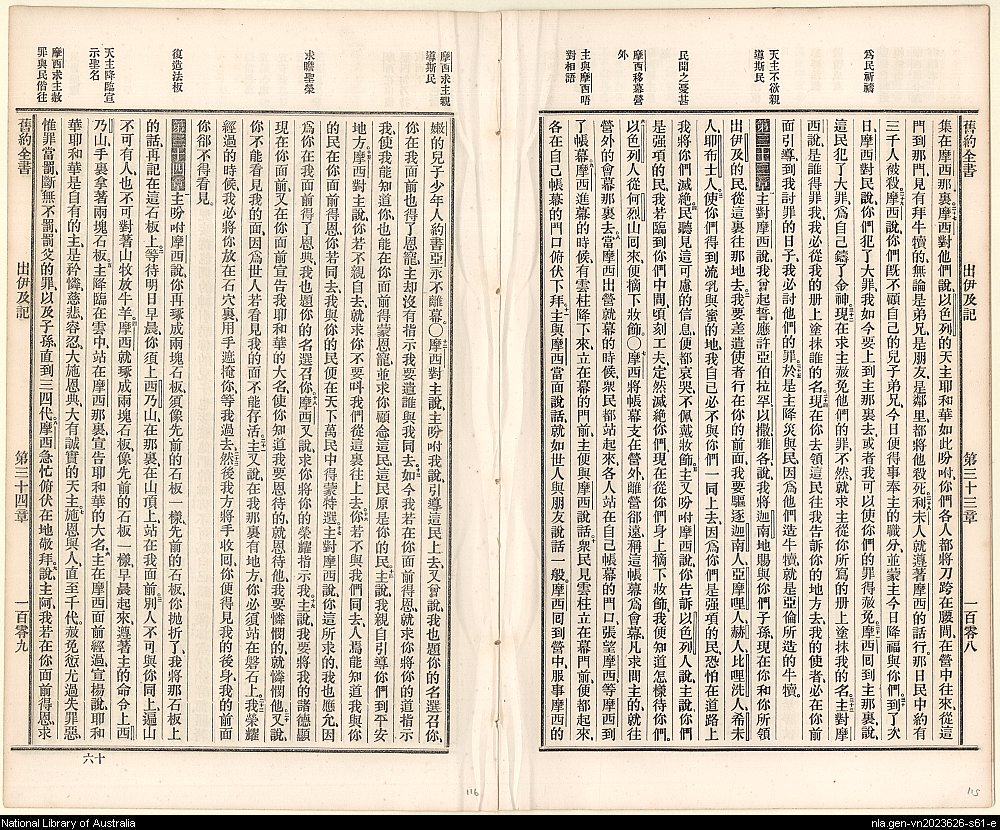 為民祈禱
天主不欲親
導斯民
民聞之憂甚
摩西移幕營
外
主與摩西唔
對相語
舊約全書 出伊及記 第三十三章 一百零八
集在摩西那裏摩西對他們說以色列的天主耶和華如此吩咐你們各人都將刀跨在腰間在營中往來從這
門到那門見有拜牛犢的無論是弟兄是朋友是鄰里都將他殺死利未人就遵著摩西的話行那日民中約有
三千人被殺摩西說你們既不顧自己的兒子弟兄今日便得事奉主的職分並蒙主今日降福與你們到了次
日摩西對民說你們犯了大罪我如今要上到主那裏去或者我可以使你們的罪得赦免摩西囘到主那裏說
這民犯了大罪為自己鑄了金神現在求主赦免他們的罪不然就求主從你所寫的册上塗抹我的名主對摩
西說是誰得罪我我必從我的册上塗抹誰的名現在你去領這民往我告訴你的地方去我的使者必在你前
面引導到我討罪的日子我必討他們的罪於是主降災與民因為他們造牛犢就是亞倫所造的牛犢
第三十三章 主對摩西說我曾起誓應許亞伯拉罕以撒雅各說我將迦南地賜與你們子孫現在你和你所領
出伊及的民從這裏往那地去我要差遣使者行在你的前面我要驅逐迦南人亞摩哩人赫人比哩洗人希未
人耶布士人使你們得到流乳與蜜的地我自己必不與你們一同上去因為你們是强項的民恐怕在道路上
我將你們滅絶民聽見這可慮的信息便都哀哭不佩戴妝飾主又吩咐摩西說你告訴以色列人說主說你們
是强項的民我若臨到你們中間頃刻工夫定然滅絶你們現在從你們身上摘下妝飾我便知道怎樣待你們
以色列人從何烈山囘來便摘下妝飾〇摩西將帳幕支在營外離營卻遠稱這帳幕為會幕凡求問主的就往
營外的會幕那裏去當摩西出營就幕的時候衆民都站起來各人站在自己帳幕的門口張望摩西等到摩西
了帳幕摩西進幕的時候有雲柱降下來立在幕的門前主便與摩西說話衆民見雲柱立在幕門前便都起來
各在自己帳幕的門口俯伏下拜主與摩西當面說話就如世人與朋友說話一般摩西囘到營中服事摩西的
115
摩西求主親
導斯民
求瞻聖榮
復造法板
天主降臨宣
示聖名
摩西求主赦
罪與民偕往
嫩的兒子少年人約書亞永不離幕〇摩西對主說主吩咐我說引導這民上去又曾說我也題你的名選召你
你在我面前也得了恩寵主却沒有指示我要遣誰與我同去如今我若在你面前得恩就求你將你的道指示
我使我能知道你也能在你面前得蒙恩寵並求你顧念這民這民原是你的民主說我親自引導你們到平安
地方摩西對主說你若不親自去就求你不要呌我們從這裏往上去你若不與我們同去人焉能知道我與你
的民在你面前得恩你若同去我與你的民便在天下萬民中得蒙特選主對摩西說你這所求的我也應允因
為你在我面前得了恩典我也題你的名選召你摩西又說求你將你的榮耀指示我主說我要將我的諸德顯
現在你面前又在你面前宣告我耶和華的大名使你知道我要恩待的就恩待他我要憐憫的就憐憫他又說
你不能看見我的面因為世人若看見我的面不能存活主又說在我那裏有地方你必須站在磐石上我榮耀
經過的時候我必將你放在石穴裏用手遮掩你等我過去然後我方將手收囘你便得見我的後身我的前面
你卻不得看見
第三十四章 主吩咐摩西說你再琢成兩塊石板須像先前的石板一樣先前的石板你抛折了我將那石板上
的話再記在這石板上等待明日早晨你須上西乃山在那裏在山頂上站在我面前別人不可與你同上遍山
不可有人也不可對著山牧放牛羊摩西就琢成兩塊石板像先前的石板一樣早晨起來遵著主的命令上西
乃山手裏拿著兩塊石板主降臨在雲中站在摩西那裏宣告耶和華的大名主在摩西面前經過宣揚說耶和
華耶和華是自有的主是矜憐慈悲容忍大施恩典大有誠實的天主施恩與人直至千代赦免愆尤過失罪惡
惟罪當罰斷無不罰罰父的罪以及子孫直到三四代摩西急忙俯伏在地敬拜說主阿我若在你面前得恩求
舊約全書 出伊及記 第三十四章 一百零九
六十
116
National Library of Australia
nla.gen-vn2023626-s61-e